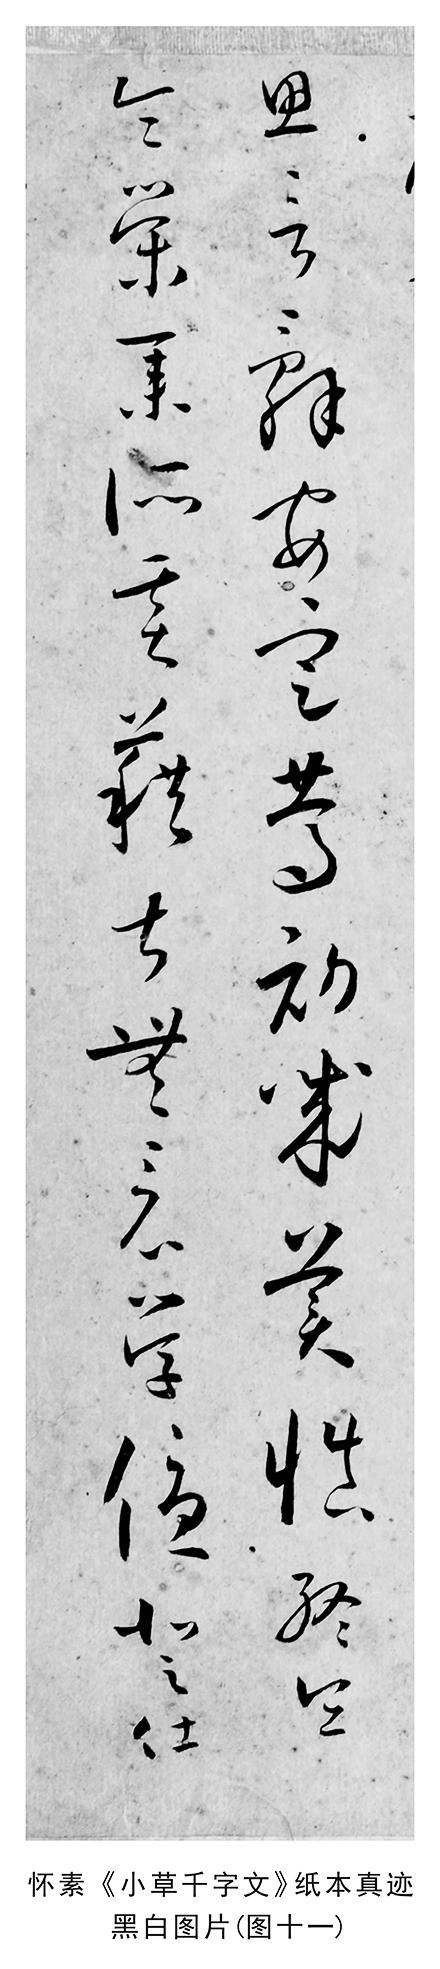 思言辭安定篤初誠美慎終宜
令榮業所基藉甚無竟學優登仕
怀素《小草千字文》纸本真迹
黑白图片(图十一)